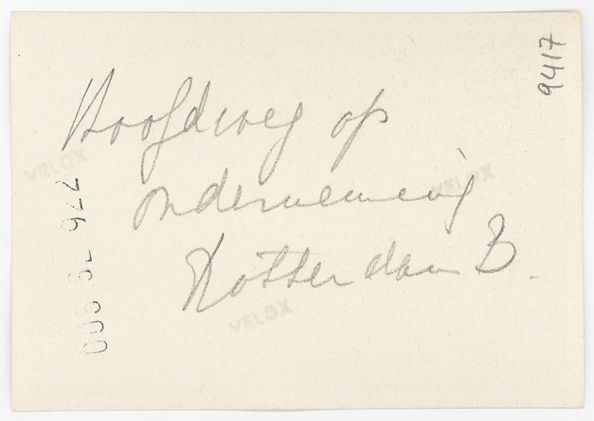 Hoofdweg op
onderneming
Rotterdam B.
9417
VELOX
VELOX
VELOX